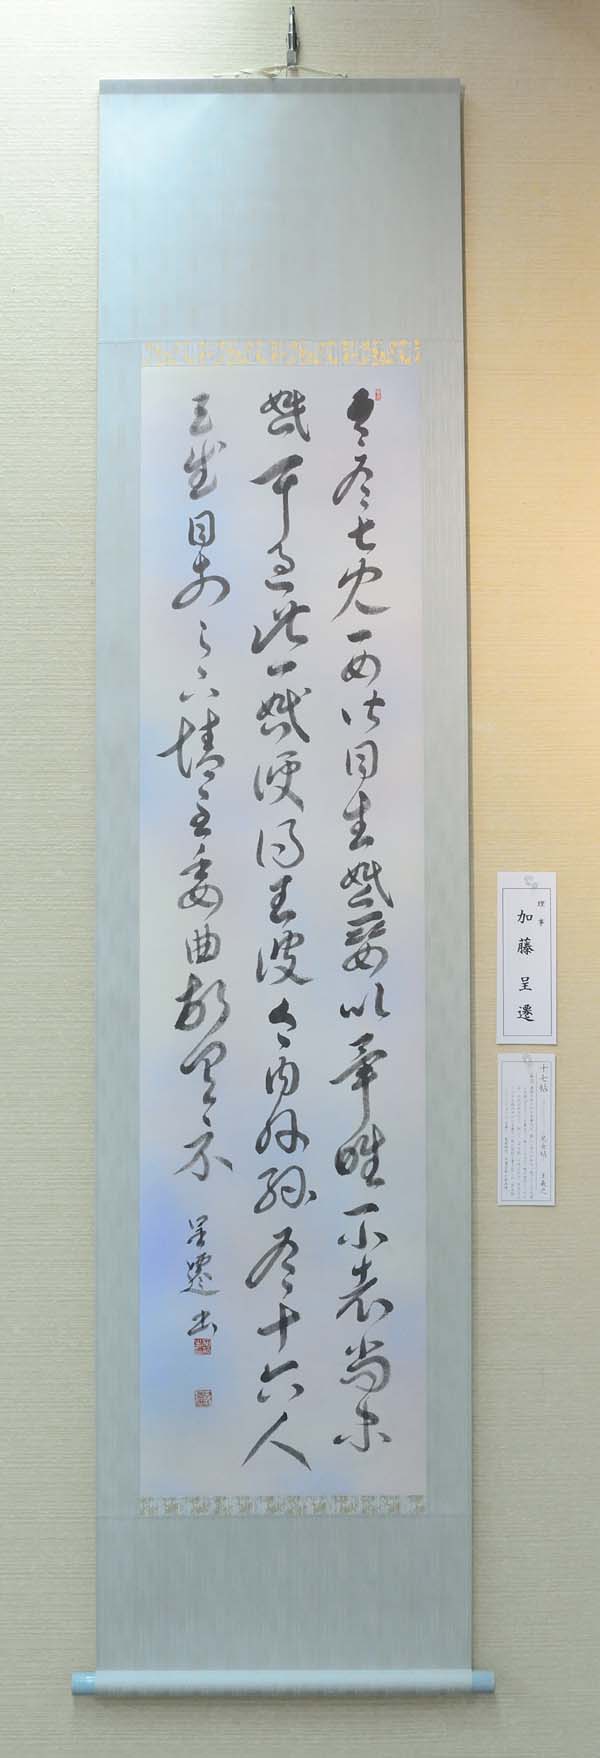 吾有七兒一女皆同生婚娶以畢唯一小者尚未
婚耳過此一婚便得至彼今内外孫有十六人
足慰目前足下情至委曲故具示
呈遷書
理事
加藤呈遷
十七帖 児女帖 王羲之